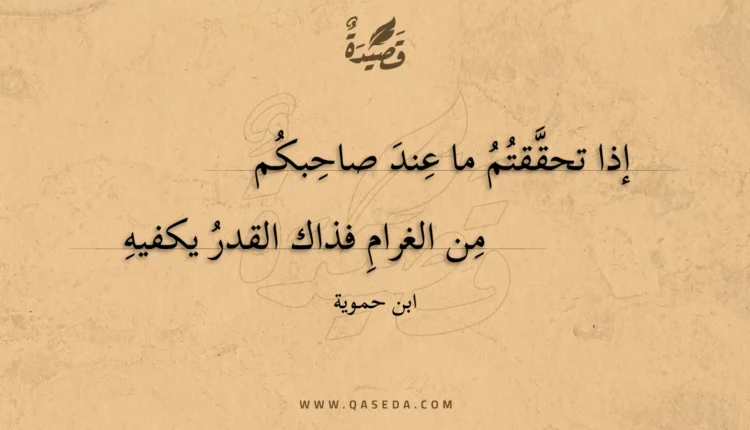 قَصِيْدَةٌ
إذا تحقَّقتُمُ ما عِندَ صاحِبكُم
مِن الغرامِ فذاك القدرُ يكفيهِ
ابن حموية
WWW.QASEDA.COM